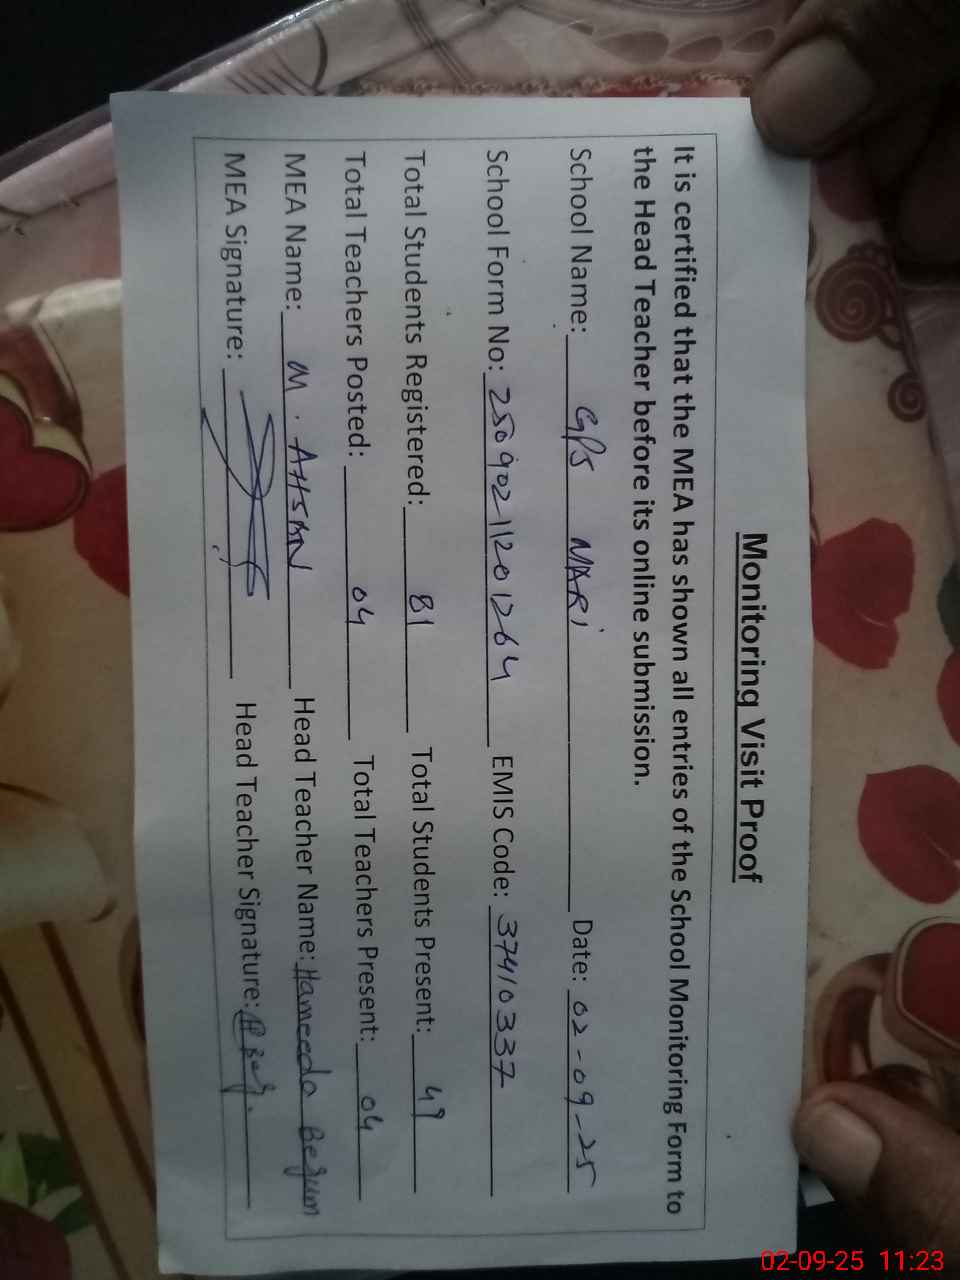 Monitoring Visit Proof
It is certified that the MEA has shown all entries of the School Monitoring Form to
the Head Teacher before its online submission.
School Name: GPS MARI Date: 02-09-25
School Form No: 25090211201264 EMIS Code: 37410337
Total Students Registered: 81 Total Students Present: 49
Total Teachers Posted: 04 Total Teachers Present: 04
MEA Name: M. AHSAN Head Teacher Name: Hameeda Begum
MEA Signature: Head Teacher Signature:
02-09-25 11:23